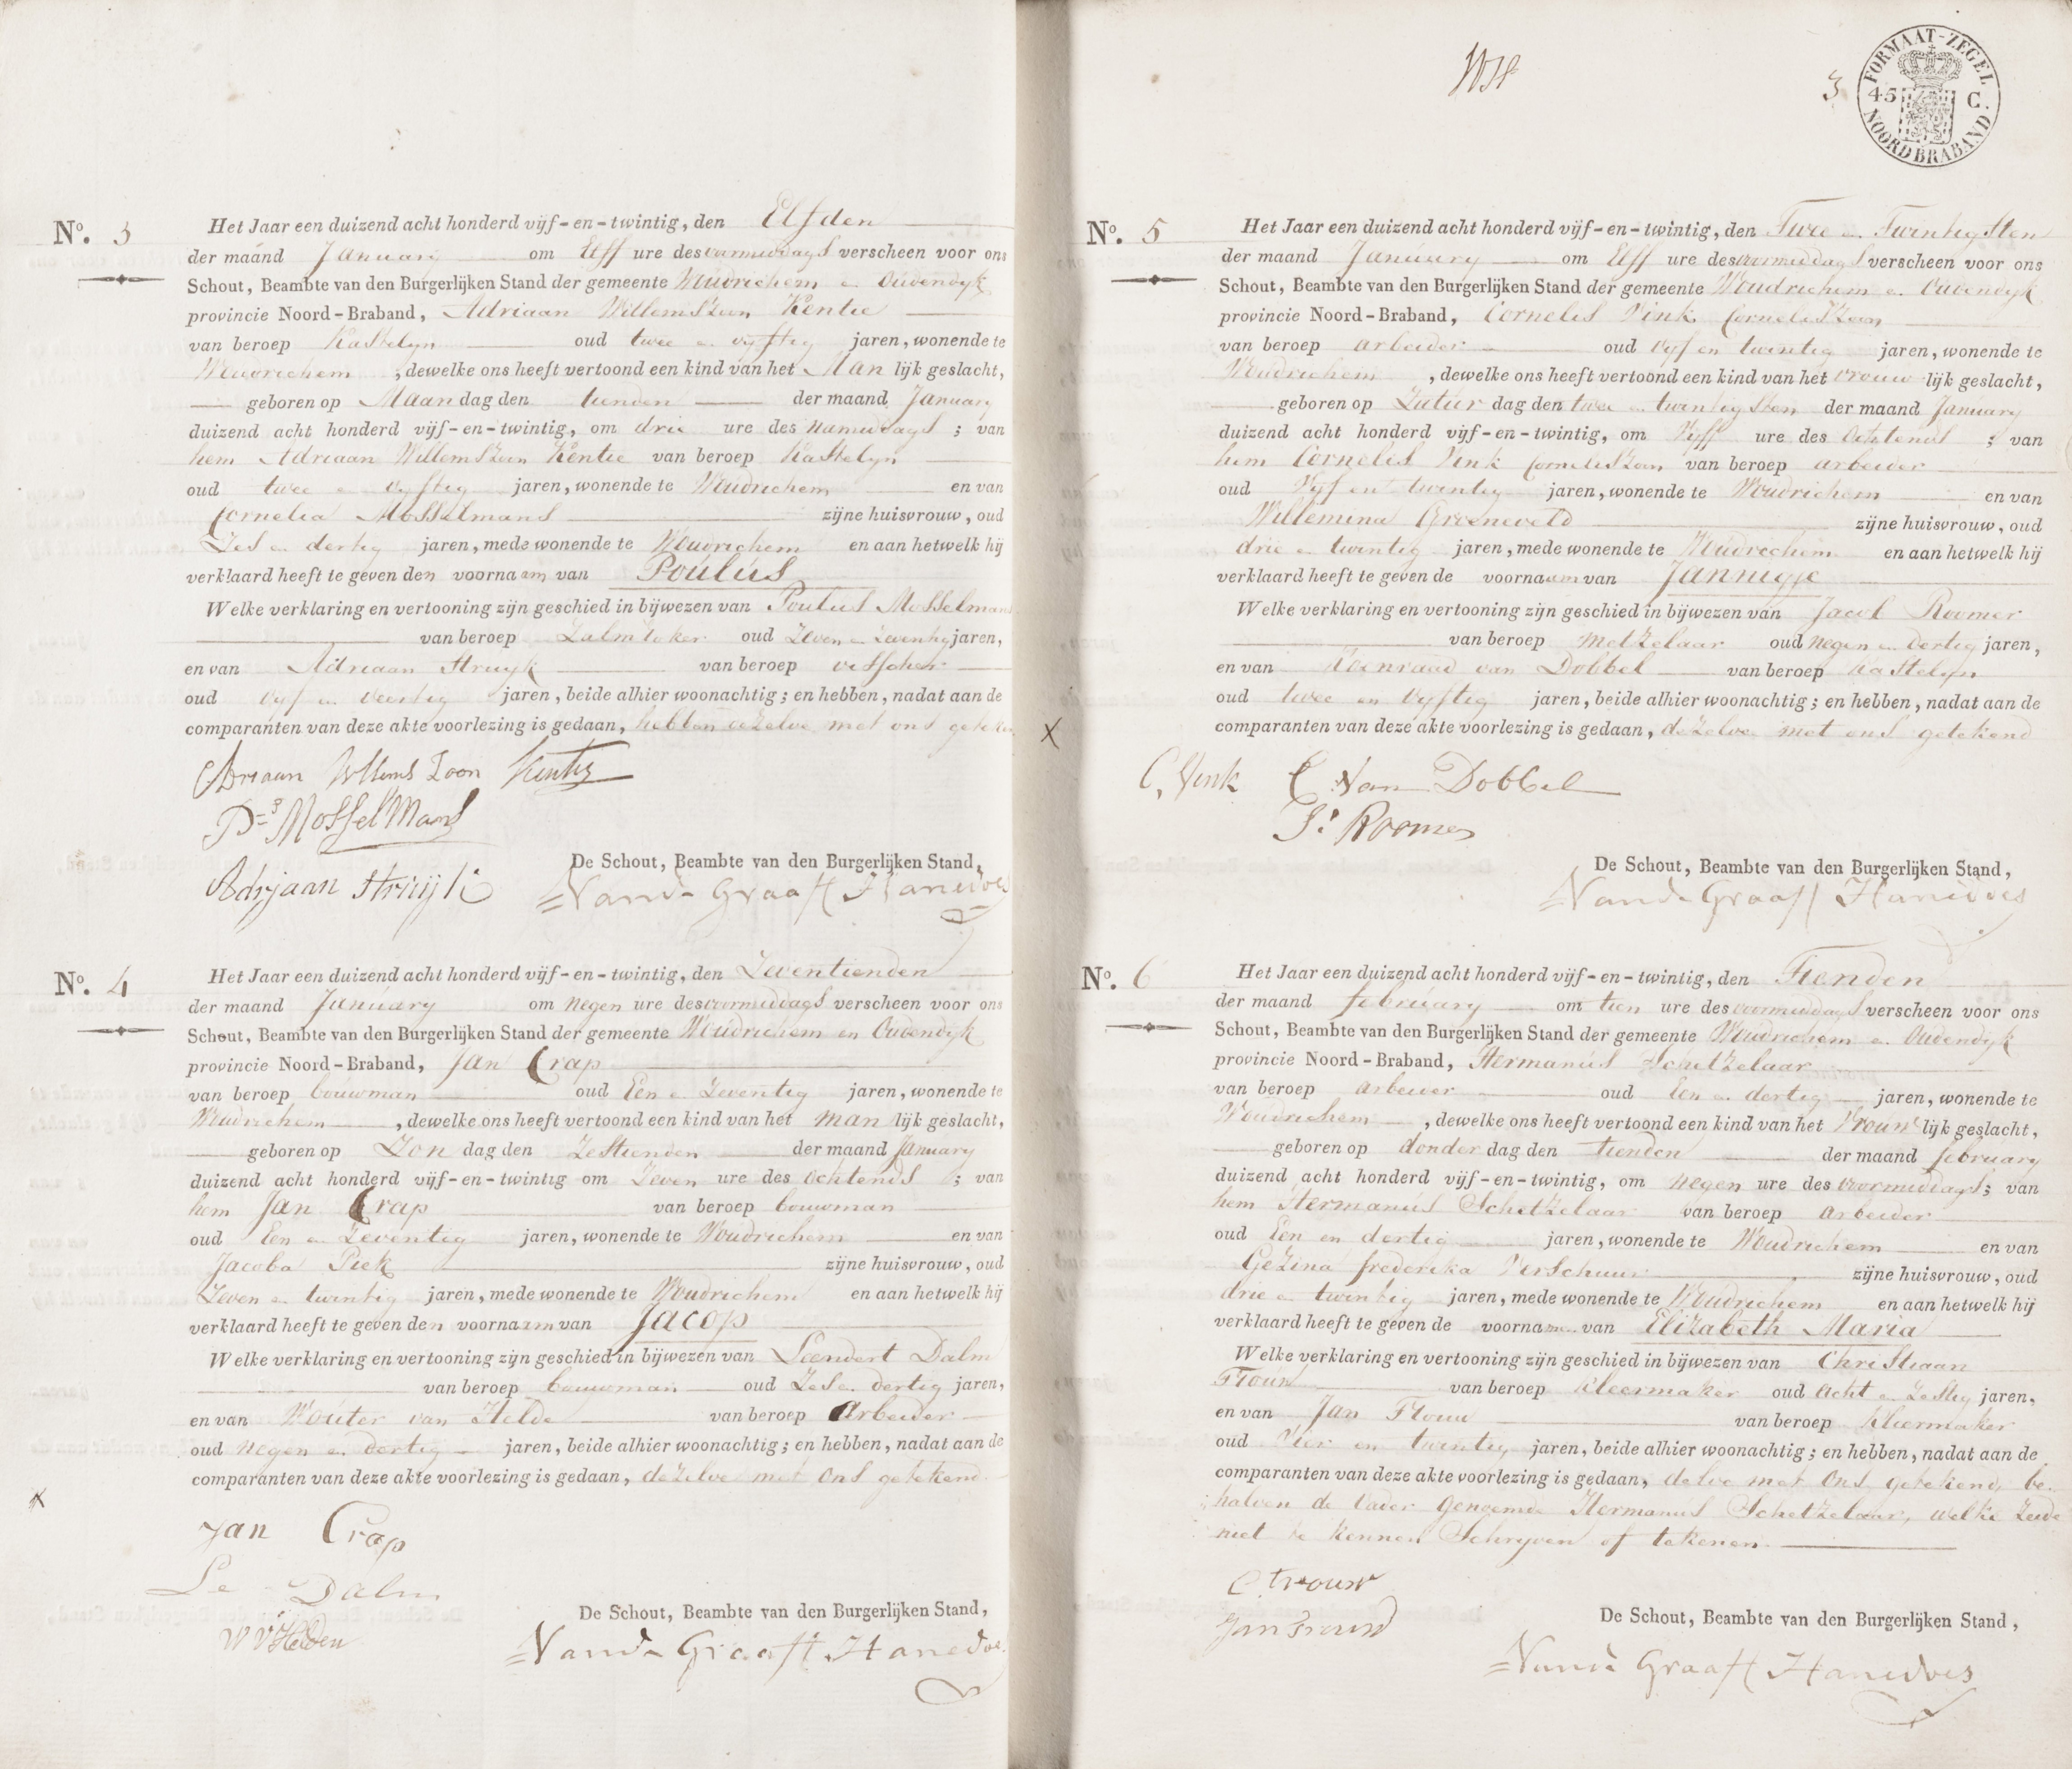 No. 3
Het Jaar een duizend acht honderd vijf-en-twintig, den Elfden
der maand January om Elff ure des voormiddags verscheen voor ons
Schout, Beambte van den Burgerlijken Stand der gemeente Woudrichem en Oudendyk
provincie Noord-Braband, Adriaan Willemszoon Kentie
van beroep Kastelyn oud twee en vyftig jaren, wonende te
Woudrichem, dewelke ons heeft vertoond een kind van het Man lijk geslacht,
geboren op Maan dag den tienden der maand January
duizend acht honderd vijf-en-twintig, om drie ure des Namiddags; van
hem Adriaan Willemszoon Kentie van beroep Kastelyn
oud twee en vyftig jaren, wonende te Woudrichem en van
Cornelia Mosselmans zijne huisvrouw, oud
Zes en dertig jaren, mede wonende te Woudrichem en aan hetwelk hij
verklaard heeft te geven den voornaam van Poulus
Welke verklaring en vertooning zijn geschied in bijwezen van Poulus Mosselmans
van beroep Zalm oud Zeven en Zeventig jaren,
en van Adriaan Struyk van beroep visscher
oud vyf en veertig jaren, beide alhier woonachtig; en hebben, nadat aan de
comparanten van deze akte voorlezing is gedaan, hebben dezelve met ons geteken
Adriaan Willems Zoon Kentie
Ps Mosselmans
Adrjaan Struijk
De Schout, Beambte van den Burgerlijken Stand,
Van de Graaff Hanedoes
No. 4
Het Jaar een duizend acht honderd vijf-en-twintig, den Zeventienden
der maand January om Negen ure des voormiddags verscheen voor ons
Schout, Beambte van den Burgerlijken Stand der gemeente Woudrichem en Oudendyk
provincie Noord-Braband, Jan Crap
van beroep bouwman oud Een en Zeventig jaren, wonende te
Woudrichem, dewelke ons heeft vertoond een kind van het Man lijk geslacht,
geboren op Zon dag den Zestienden der maand January
duizend acht honderd vijf-en-twintig om Zeven ure des ochtends; van
hem Jan Crap van beroep bouwman
oud Een en Zeventig jaren, wonende te Woudrichem en van
Jacoba Piek zijne huisvrouw, oud
Zeven en twintig jaren, mede wonende te Woudrichem en aan hetwelk hij
verklaard heeft te geven den voornaam van Jacop
Welke verklaring en vertooning zijn geschied in bijwezen van Leendert Dalm
van beroep bouwman oud Zes en dertig jaren,
en van Wouter van Helde van beroep Arbeider
oud Negen en dertig jaren, beide alhier woonachtig; en hebben, nadat aan de
comparanten van deze akte voorlezing is gedaan, dezelve met Ons getekend
Jan Crap
Le Dalm
W V Helden
De Schout, Beambte van den Burgerlijken Stand,
Van de Graaff Hanedoes
3
FORMAAT-ZEGEL
45 C.
NOORDBRABAND
No. 5
Het Jaar een duizend acht honderd vijf-en-twintig, den Twee en Twintigsten
der maand January om Elff ure des voormiddags verscheen voor ons
Schout, Beambte van den Burgerlijken Stand der gemeente Woudrichem en Oudendyk
provincie Noord-Braband, Cornelis Vink Corneliszoon
van beroep arbeider oud vyf en twintig jaren, wonende te
Woudrichem, dewelke ons heeft vertoond een kind van het vrouw lijk geslacht,
geboren op Zatur dag den twee en twintigsten der maand January
duizend acht honderd vijf-en-twintig, om Vyff ure des Ochtends; van
hem Cornelis Vink Corneliszoon van beroep arbeider
oud Vyf en twintig jaren, wonende te Woudrichem en van
Willemina Groeneveld zijne huisvrouw, oud
drie en twintig jaren, mede wonende te Woudrichem en aan hetwelk hij
verklaard heeft te geven de voornaam van Jannigje
Welke verklaring en vertooning zijn geschied in bijwezen van Jacob Roomer
van beroep Metzelaar oud Negen en dertig jaren,
en van Koenraad van Dobbel van beroep Kastelyn
oud twee en vyftig jaren, beide alhier woonachtig; en hebben, nadat aan de
comparanten van deze akte voorlezing is gedaan, dezelve met ons getekend
C. Vink C Van Dobbel
J: Roomer
De Schout, Beambte van den Burgerlijken Stand,
Van de Graaff Hanedoes
No. 6
Het Jaar een duizend acht honderd vijf-en-twintig, den Tienden
der maand february om tien ure des voormiddags verscheen voor ons
Schout, Beambte van den Burgerlijken Stand der gemeente Woudrichem en Oudendyk
provincie Noord-Braband, Hermanus Schetzelaar
van beroep arbeider oud Een en dertig jaren, wonende te
Woudrichem, dewelke ons heeft vertoond een kind van het Vrouw lijk geslacht,
geboren op donder dag den tienden der maand february
duizend acht honderd vijf-en-twintig, om negen ure des voormiddags; van
hem Hermanus Schetzelaar van beroep arbeider
oud Een en dertig jaren, wonende te Woudrichem en van
Gezina frederika Verschuur zijne huisvrouw, oud
drie en twintig jaren, mede wonende te Woudrichem en aan hetwelk hij
verklaard heeft te geven de voorna van Elizabeth Maria
Welke verklaring en vertooning zijn geschied in bijwezen van Christiaan
Trouw van beroep kleermaker oud Acht en Zestig jaren,
en van Jan Trouw van beroep kleermaker
oud Vier en twintig jaren, beide alhier woonachtig; en hebben, nadat aan de
comparanten van deze akte voorlezing is gedaan, delve met Ons getekend, be
halven de Vader genoemde Hermanus Schetzelaar, welke Zeide
niet te kennen Schryven of tekenen.
C. trouw
Jan Trouw
De Schout, Beambte van den Burgerlijken Stand,
Van de Graaff Hanedoes